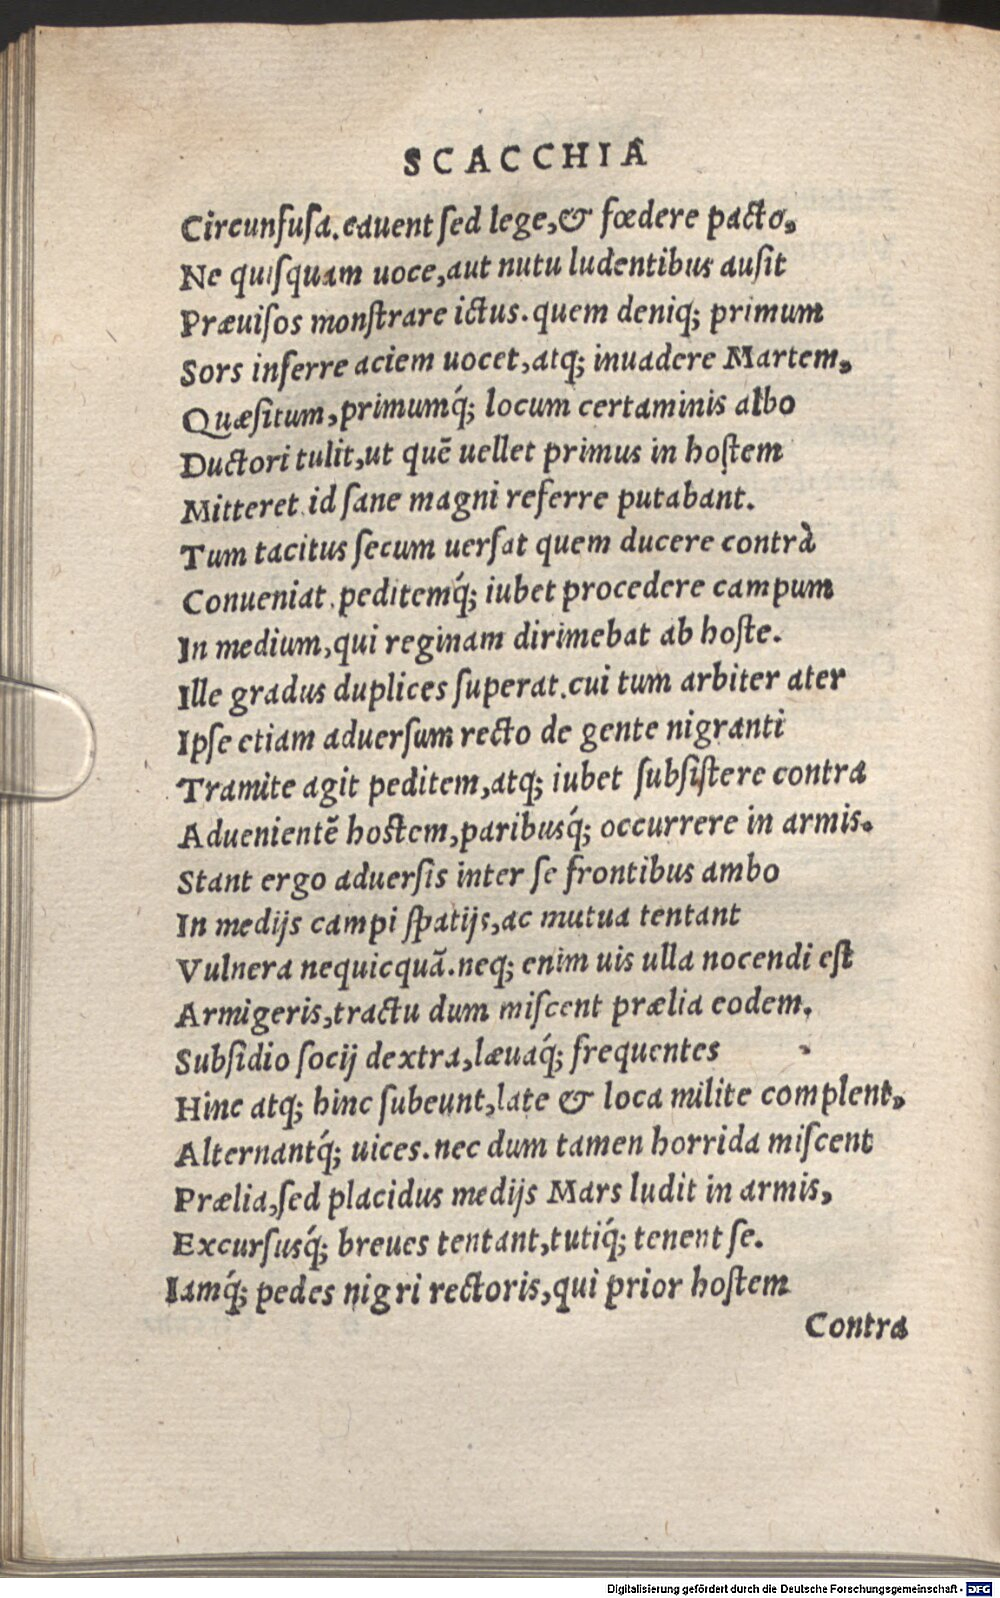 SCACCHIA
Circunfusa. cauent sed lege, & fœdere pacto,
Ne quisquam uoce, aut nutu ludentibus ausit
Præuisos monstrare ictus. quem deniq; primum
Sors inferre aciem uocet, atq; inuadere Martem,
Quæsitum, primumq́; locum certaminis albo
Ductori tulit, ut quẽ uellet primus in hostem
Mitteret. id sane magni referre putabant.
Tum tacitus secum uersat quem ducere contrà
Conueniat. peditemq́; iubet procedere campum
In medium, qui reginam dirimebat ab hoste.
Ille gradus duplices superat. cui tum arbiter ater
Ipse etiam aduersum recto de gente nigranti
Tramite agit peditem, atq; iubet subsistere contra
Aduenientẽ hostem, paribusq́; occurrere in armis.
Stant ergo aduersis inter se frontibus ambo
In medijs campi spatijs, ac mutua tentant
Vulnera nequicquã. neq; enim uis ulla nocendi est
Armigeris, tractu dum miscent prælia eodem.
Subsidio socij dextra, læuaq́; frequentes
Hinc atq; hinc subeunt, late & loca milite complent,
Alternantq́; uices. nec dum tamen horrida miscent
Prælia, sed placidus medijs Mars ludit in armis,
Excursusq́; breues tentant, tutiq́; tenent se.
Iamq́; pedes nigri rectoris, qui prior hostem
Contra
Digitalisierung gefördert durch die Deutsche Forschungsgemeinschaft - DFG